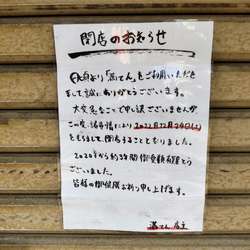 閉店のお知らせ
日頃より「満てん」をご利用いただき
まして誠にありがとうございます。
大変急なことで申し訳ございませんが
この度、諸事情により2022年12月24日(土)
をもちまして、閉店することとなりました。
2020年から約3年間御愛顧有難とう
ございました。
皆様の御健康お祈り申し上げます。
満てん 店主